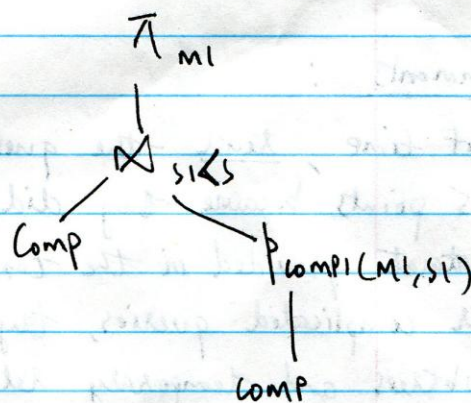 π M1
⋈ S1<S
Comp
ρ COMP1(M1,S1)
COMP